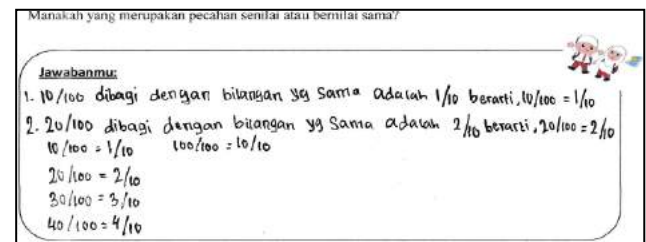 Manakah yang merupakan pecahan senilai atau bernilai sama?
Jawabanmu:
1. 10/100 dibagi dengan bilangan yg sama adalah 1/10 berarti, 10/100 = 1/10
2. 20/100 dibagi dengan bilangan yg sama adalah 2/10 berarti, 20/100 = 2/10
10/100 = 1/10 100/100 = 10/10
20/100 = 2/10
30/100 = 3/10
40/100 = 4/10